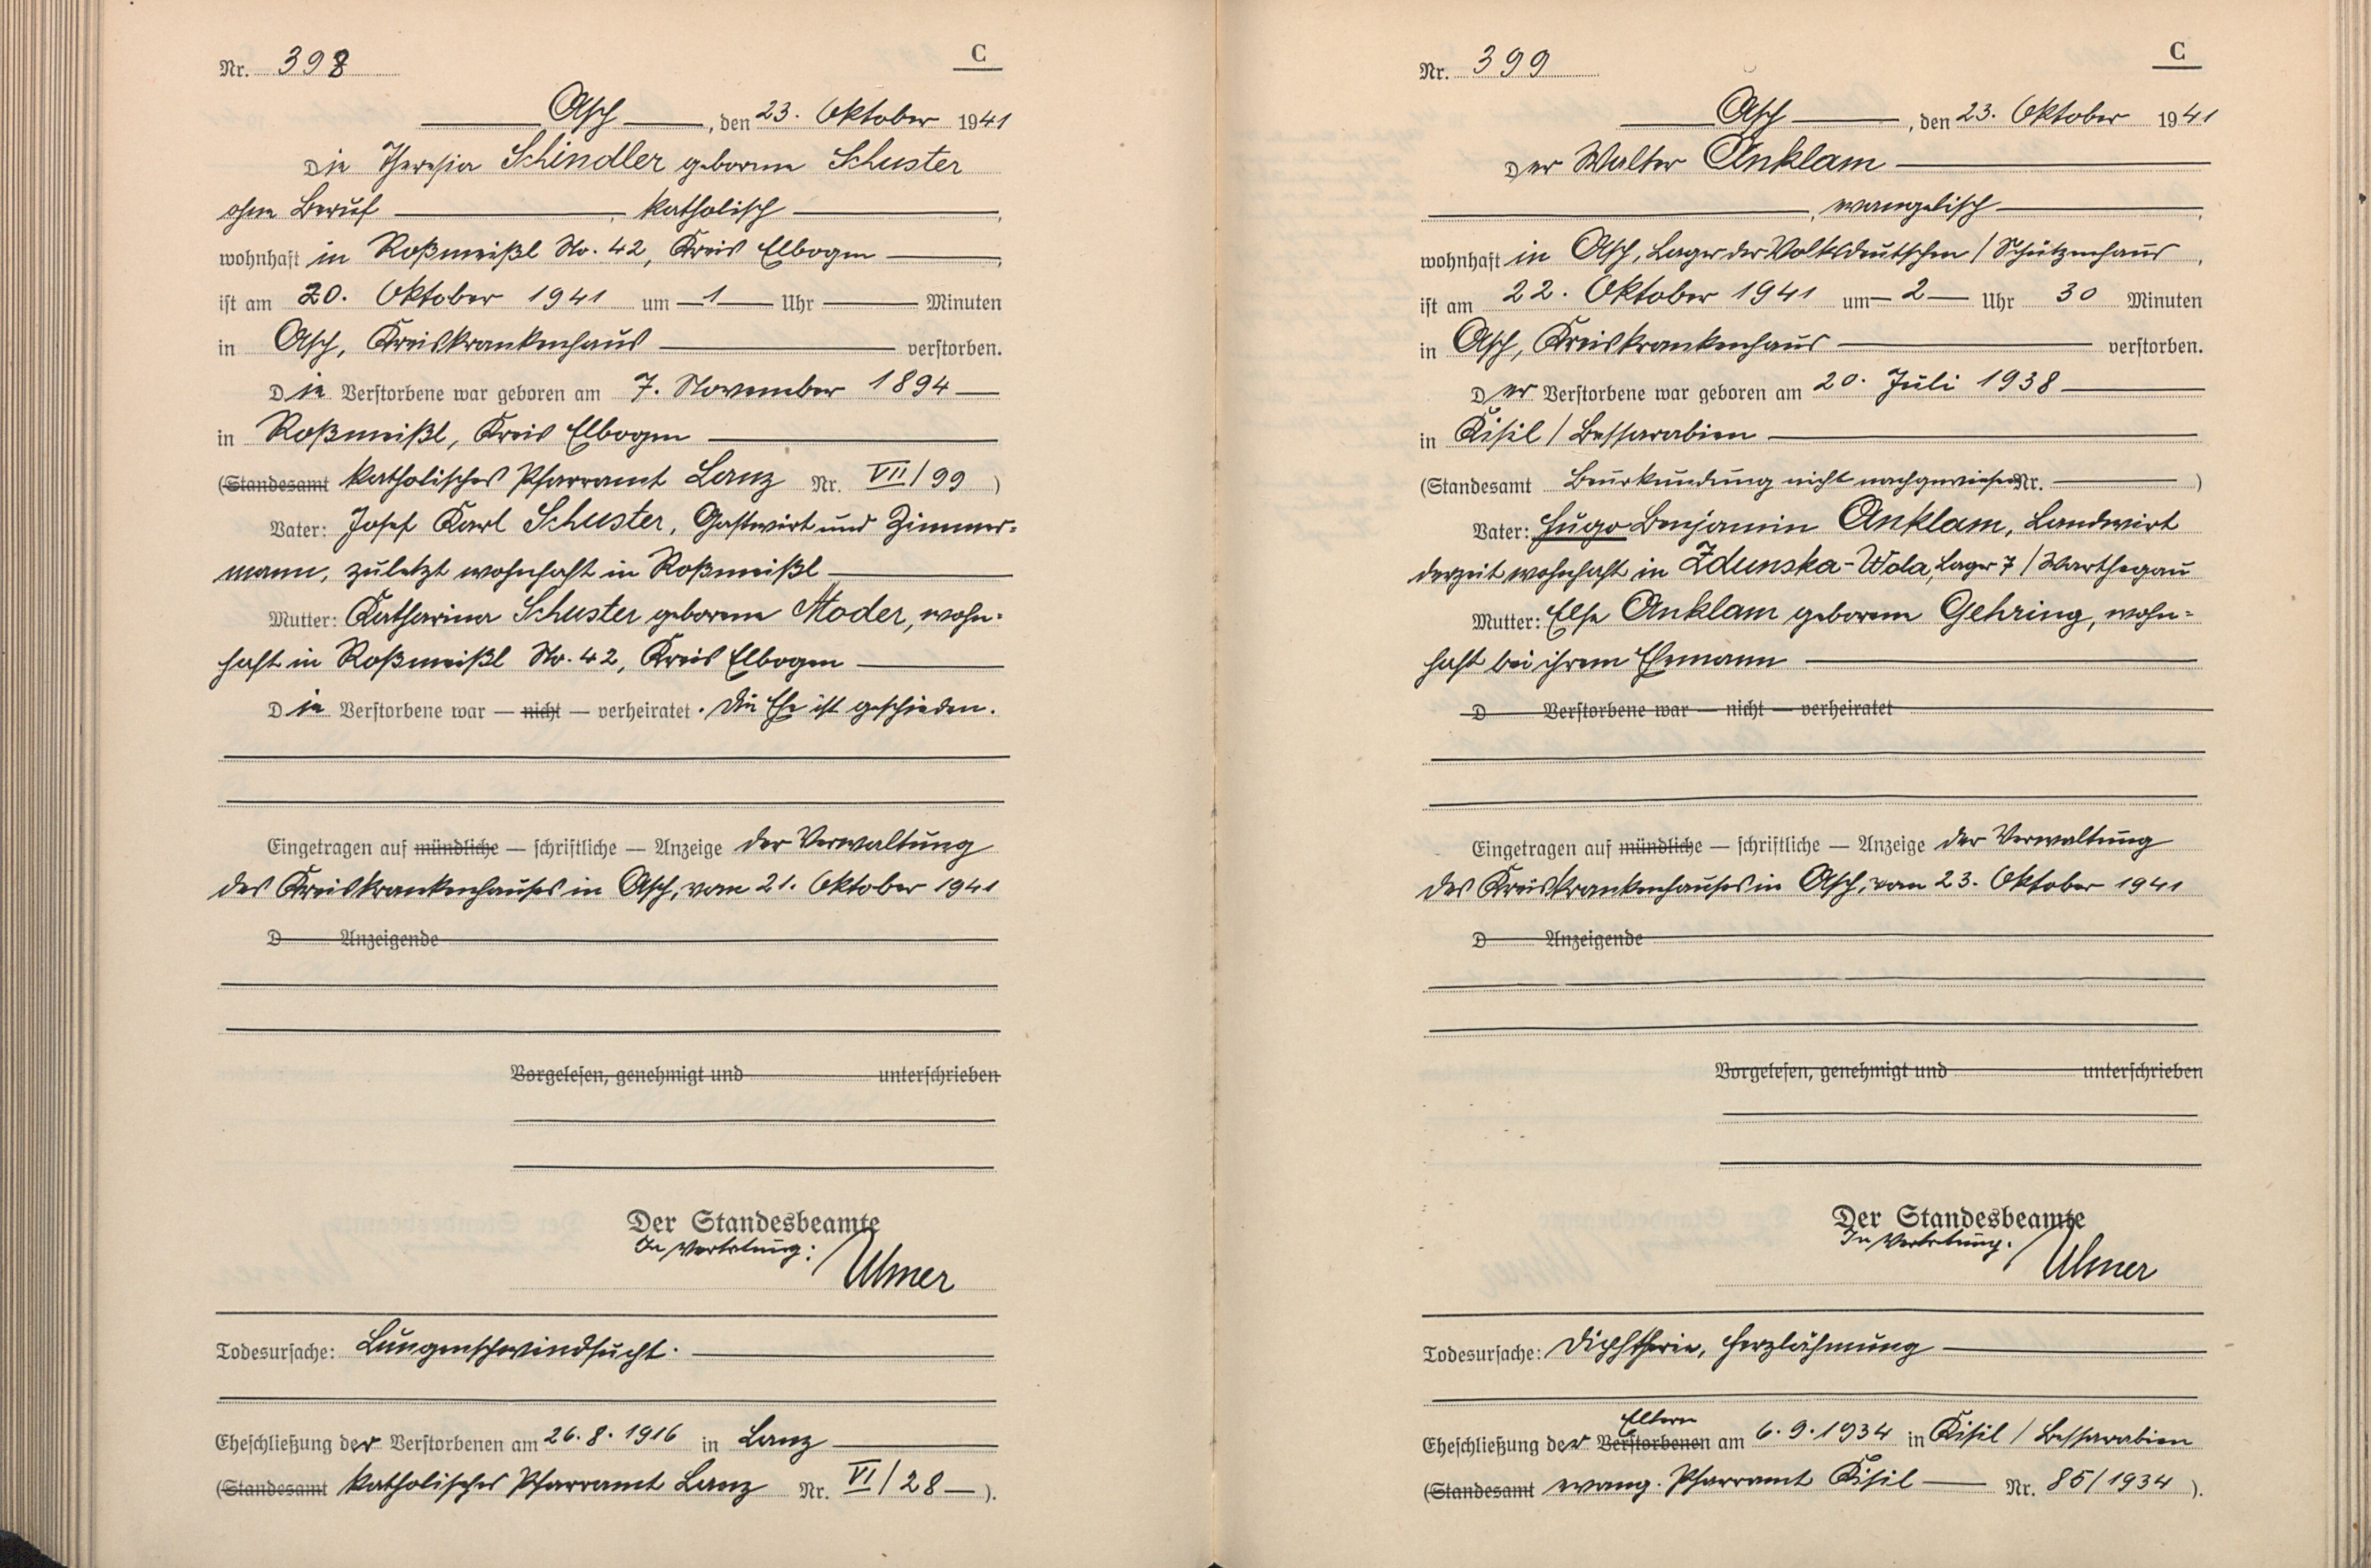 Nr. 398
C
Asch, den 23. Oktober 1941
Die Theresia Schindler geborene Schuster
ohne Beruf, katholisch,
wohnhaft in Roßmeißl No. 42, Kreis Elbogen,
ist am 20. Oktober 1941 um 1 Uhr Minuten
in Asch, Kreiskrankenhaus verstorben.
Die Verstorbene war geboren am 7. November 1894
in Roßmeißl, Kreis Elbogen
(Standesamt katholisches Pfarramt Lanz Nr. VII/99)
Vater: Josef Karl Schuster, Gastwirt und Zimmer=
mann, zuletzt wohnhaft in Roßmeißl
Mutter: Katharina Schuster geborene Moder, wohn=
haft in Roßmeißl No. 42, Kreis Elbogen
Die Verstorbene war — nicht — verheiratet. Die Ehe ist geschieden.
Eingetragen auf mündliche — schriftliche — Anzeige der Verwaltung
des Kreiskrankenhauses in Asch, vom 21. Oktober 1941
D Anzeigende
Vorgelesen, genehmigt und unterschrieben
Der Standesbeamte
In Vertretung: Ulmer
Todesursache: Lungenschwindsucht.
Eheschließung der Verstorbenen am 26.8.1916 in Lanz
(Standesamt katholisches Pfarramt Lanz Nr. VI/28).
Nr. 399
C
Asch, den 23. Oktober 1941
Der Walter Anklam
, evangelisch,
wohnhaft in Asch, Lager der Volksdeutschen / Schützenhaus,
ist am 22. Oktober 1941 um 2 Uhr 30 Minuten
in Asch, Kreiskrankenhaus verstorben.
Der Verstorbene war geboren am 20. Juli 1938
in Kisil / Bessarabien
(Standesamt Beurkundung nicht nachgewiesen Nr. )
Vater: Hugo Benjamin Anklam, Landwirt
derzeit wohnhaft in Zdunska-Wola, Lager 7 / Warthegau
Mutter: Else Anklam geborene Gehring, wohn=
haft bei ihrem Ehemann
D Verstorbene war — nicht — verheiratet
Eingetragen auf mündliche — schriftliche — Anzeige der Verwaltung
des Kreiskrankenhauses in Asch, vom 23. Oktober 1941
D Anzeigende
Vorgelesen, genehmigt und unterschrieben
Der Standesbeamte
In Vertretung: Ulmer
Todesursache: Diphtherie, Herzlähmung
Eltern
Eheschließung der Verstorbenen am 6.9.1934 in Kisil / Bessarabien
(Standesamt evang. Pfarramt Kisil Nr. 85/1934).